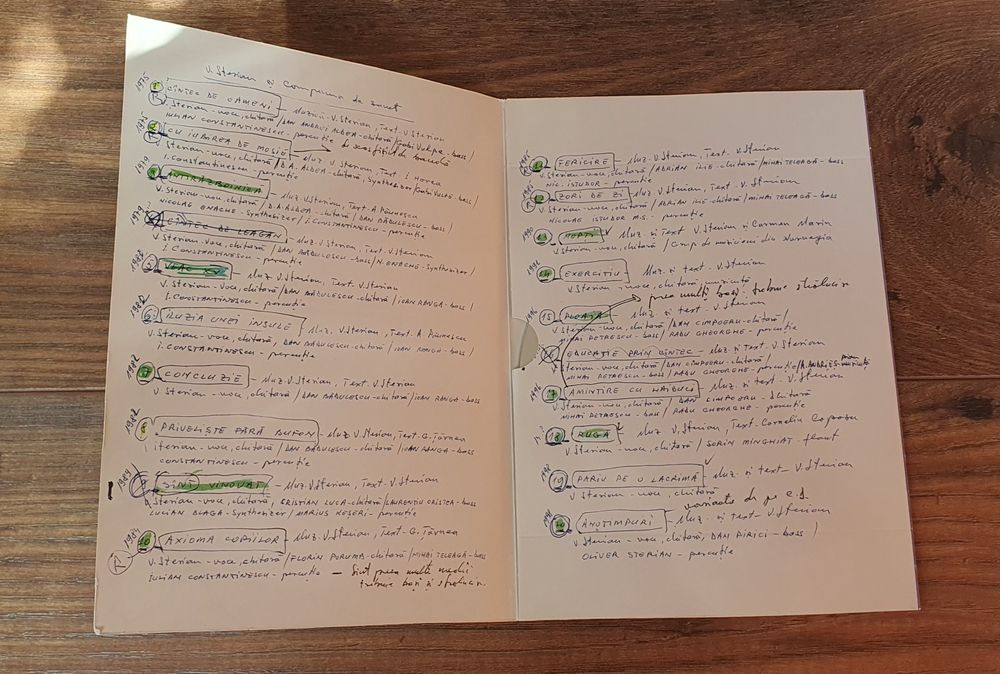 V. Sterian și Compania de sunet
1975
1 CÎNTEC DE OAMENI - Muzica - V. Sterian, Text - V. Sterian
V. Sterian - voce, chitară / DAN ANDREI ALDEA - chitară / Gabi Vulpe - bass /
IULIAN CONSTANTINESCU - percuție
1975
2 CU IUBIREA DE MOȘIE - Muz. V. Sterian, Text. I. Horea
V. Sterian - voce, chitară / D.A. ALDEA - chitară, Synthesizer / Gabi Vulpe - bass /
I. Constantinescu - percuție
1979
3 ANTIRĂZBOINICĂ - Muz. V. Sterian, Text. A. Păunescu
V. Sterian - voce, chitară / D.A. ALDEA - chitară / DAN BĂDULESCU - bass /
NICOLAS ENACHE - Synthesizer / I. Constantinescu - percuție
1979
CÎNTEC DE LEAGĂN - Muz. V. Sterian, Text. V. Sterian
V. Sterian - voce, chitară / DAN BĂDULESCU - bass / N. ENACHE - Synthesizer /
I. CONSTANTINESCU - percuție
5 VEAC XX - Muz. V. Sterian, Text. V. Sterian
V. Sterian - voce, chitară / DAN BĂDULESCU - chitară / IOAN RANGA - bass /
I. CONSTANTINESCU - percuție
1982
6 ILUZIA UNEI INSULE - Muz. V. Sterian, Text. A. Păunescu
V. Sterian - voce, chitară, DAN BĂDULESCU - chitară / IOAN RANGA - bass /
I. CONSTANTINESCU - percuție
1982
7 CONCLUZIE - Muz. V. Sterian, Text. V. Sterian
V. Sterian - voce, chitară / DAN BĂDULESCU - chitară / IOAN RANGA - bass
1982
8 PRIVELIȘTE FĂRĂ BUFON - Muz. V. Sterian, Text. G. Țărnea
V. Sterian - voce, chitară / DAN BĂDULESCU - chitară / IOAN RANGA - bass /
CONSTANTINESCU - percuție
1984
9 SÎNT VINOVAT - Muz. V. Sterian, Text. V. Sterian
V. Sterian - voce, chitară, CRISTIAN LUCA - chitară / LAURENȚIU CRISTCA - bass
LUCIAN BLAGA - Synthesizer / MARIUS KESERI - percuție
1984
10 AXIOMA COPIILOR - Muz. V. Sterian, Text - G. Țărnea
V. Sterian - voce, chitară / FLORIN PORUMA - chitară / MIHAI TELEAGĂ - bass
IULIAN CONSTANTINESCU - percuție - Sînt prea multe medii
trebuie bași și străluciri.
11 FERICIRE - Muz. V. Sterian, Text. V. Sterian
V. Sterian - voce, chitară / ADRIAN ILIE - chitară / MIHAI TELEAGĂ - bass
NIC. ISTUDOR - percuție
12 ZORI DE ZI - Muz. V. Sterian, Text - V. Sterian
V. Sterian - voce, chitară / ADRIAN ILIE - chitară / MIHAI TELEAGĂ - bass
NICOLAE ISTUDOR - percuție
1990
13 NOPȚI - Muz. și Text V. Sterian și Carmen Marin
V. Sterian - voce, chitară / Grup de muzicieni din Norvegia
14 EXERCIȚIU - Muz. și text - V. Sterian
V. Sterian - voce, chitară, muzicuță
prea mulți bași, trebuie străluciri
1996
15 PLOAIA - Muz. și text - V. Sterian
V. Sterian - voce, chitară / DAN CIMPOERU - chitară /
MIHAI PETRESCU - bass / RADU GHEORGHE - percuție
16 EDUCAȚIE PRIN CÎNTEC - Muz. și Text - V. Sterian
V. Sterian - voce, chitară / DAN CIMPOERU - chitară /
MIHAI PETRESCU - bass / RADU GHEORGHE - percuție /
1996
17 AMINTIRE CU HAIDUCI - Muz. și text - V. Sterian
V. Sterian - voce, chitară / DAN CIMPOERU - chitară
MIHAI PETRESCU - bass / RADU GHEORGHE - percuție
18 RUGĂ - Muz. V. Sterian, Text - Corneliu Coposu
V. Sterian - voce, chitară / SORIN MINGHIAT - flaut
19 PARIU PE O LACRIMĂ - Muz. și text V. Sterian
V. Sterian - voce, chitară
varianta de pe c.d.
20 ANOTIMPURI - Muz. și Text - V. Sterian
V. Sterian - voce, chitară, DAN PIRICI - bass /
OLIVER STERIAN - percuție